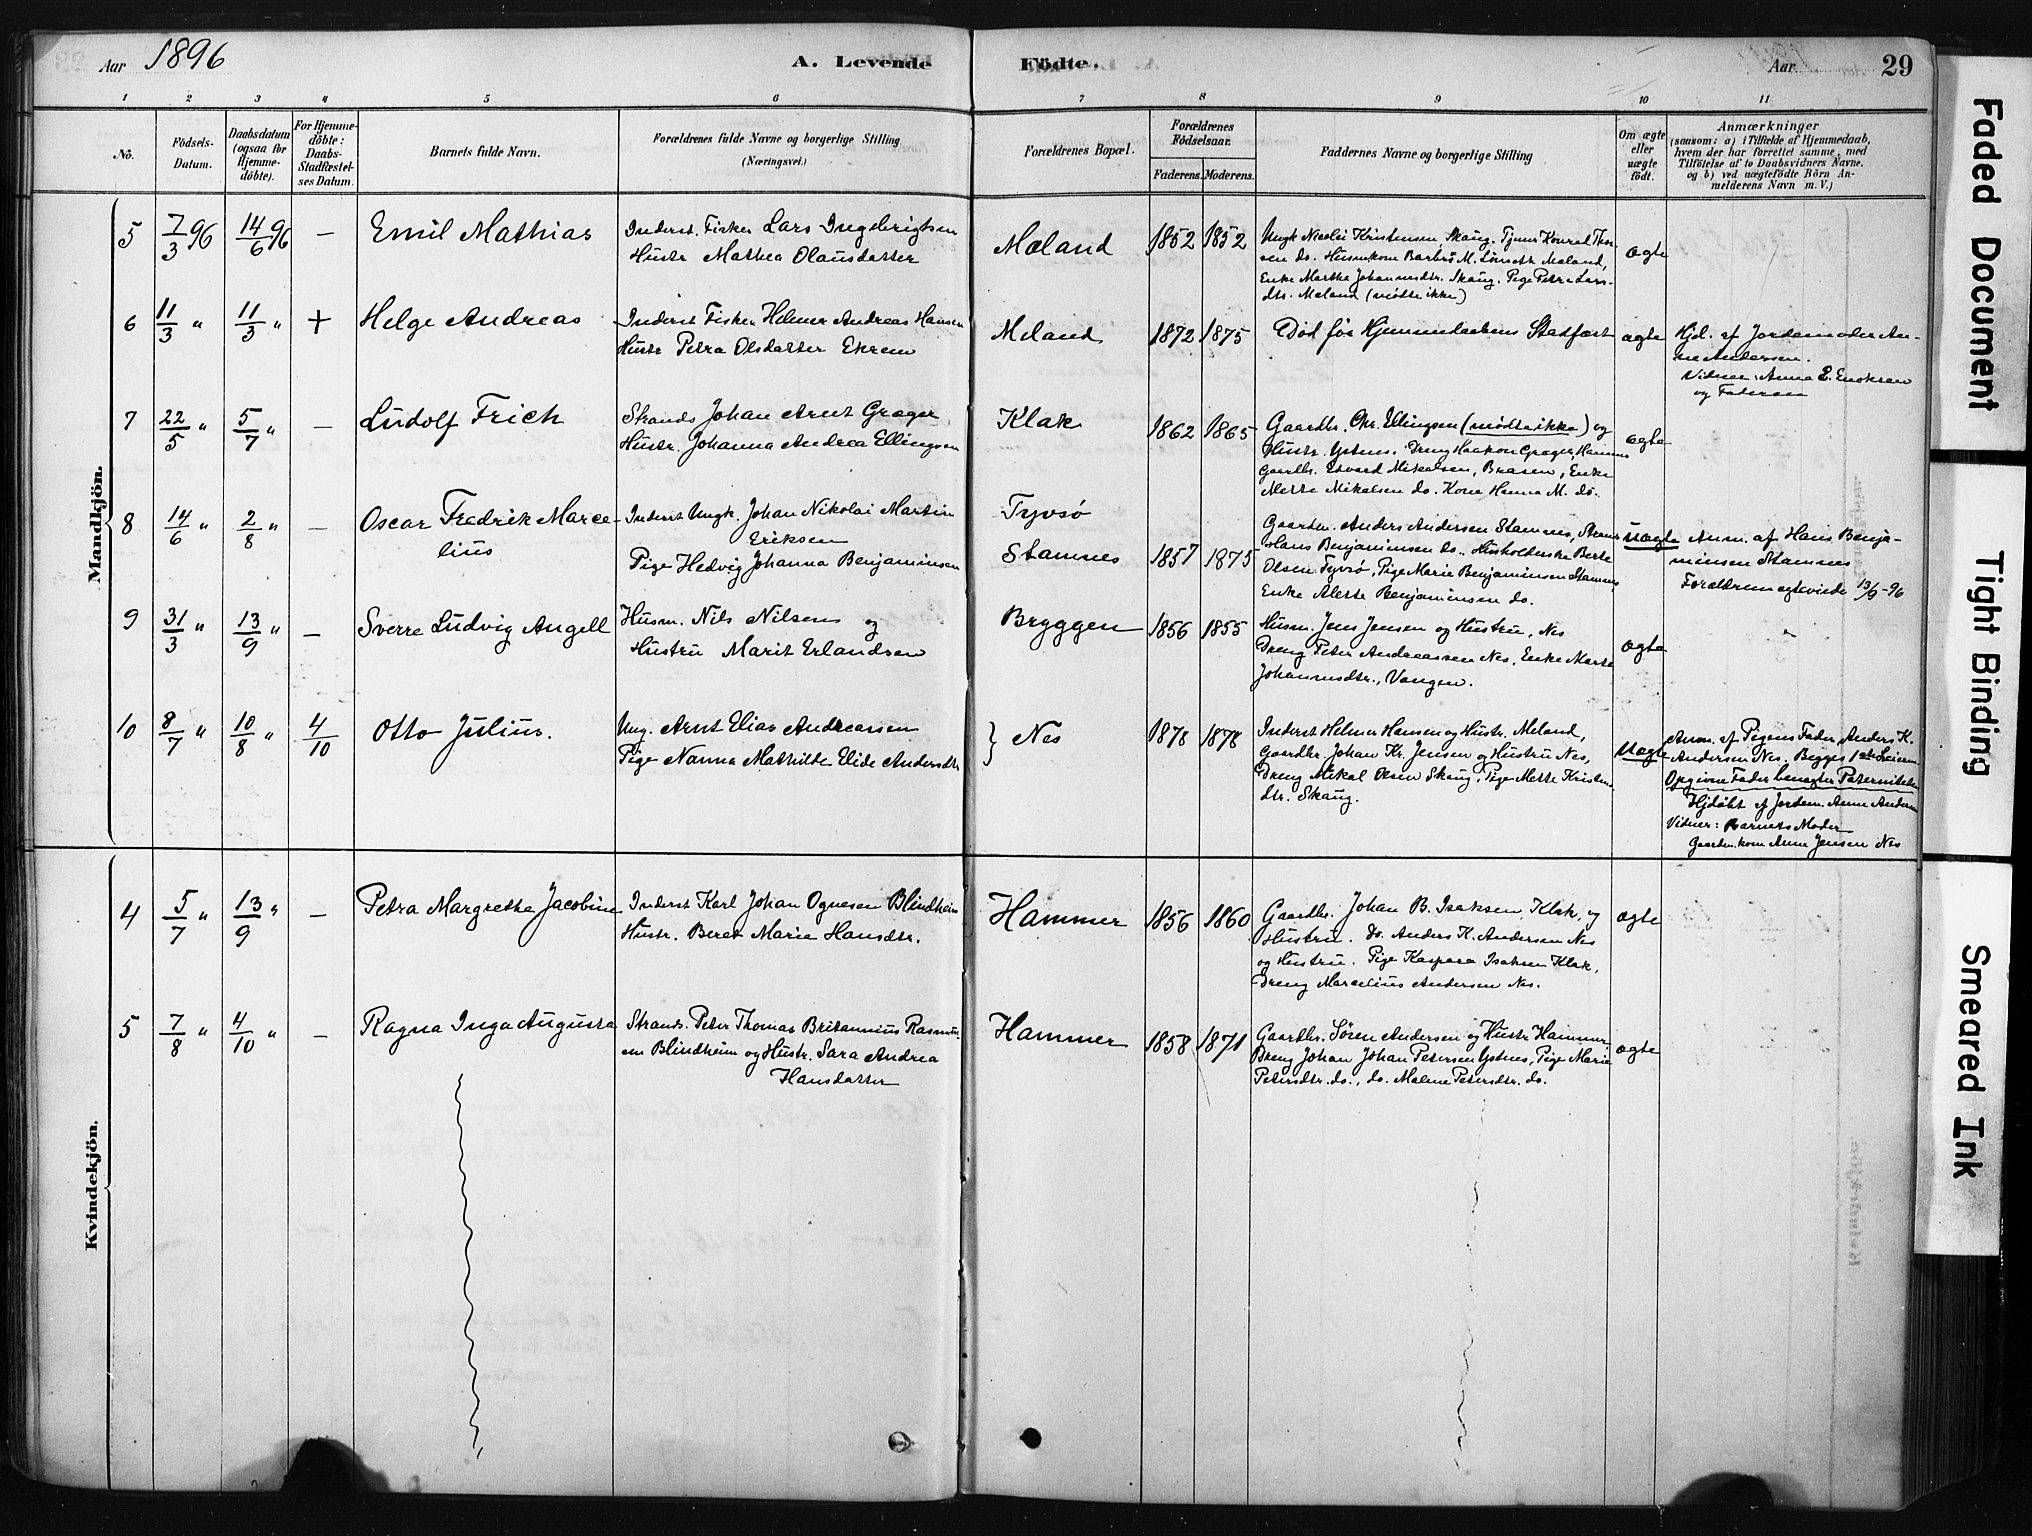 Aar 1896
A. Levende Födte.
Aar 29
1 2 3 4 5 6 7 8 9 10 11
No.
Födsels-Datum.
Daabsdatum (ogsaa for Hjemme-döbte).
For Hjemme-döbte: Daabs-Stadfæstel-ses Datum.
Barnets fulde Navn.
Forældrenes fulde Navne og borgerlige Stilling (Næringsvei.)
Forældrenes Bopæl.
Forældrenes Födselsaar.
Faderens. Moderens.
Faddernes Navne og borgerlige Stilling
Om ægte eller uægte födt.
Anmærkninger
(saasom: a) i Tilfælde af Hjemmedaab, hvem der har forrettet samme, med Tilföielse af to Daabsvidners Navne. og b) ved uægtefödte Börn An-melderens Navn m. V.)
Mandkjön.
5 7/3 96 14/6 96 — Emil Mathias
Inderst. Fisker Lars Ingebrigtsen
Hustr Mathea Olausdatter
Meland 1852 1852
Ungk Nicolai Kristensen, Skaug. Tjener Konrad Thor-
sen do. Husmkone Barbro M. Meland,
Enke Martha Johannesdtr. Skaug. Pige Petra Lars-
dtr. Meland (mødte ikke)
ægte
6 11/3 " 11/3 " + Helge Andreas
Inderst Fisker Helmer Andreas Hansen
Hustr Petra Olsdatter Ekrem
Meland 1872 1875
Død før Hjemmedaabens Stadfæst
ægte
Hjd. af Jordemoder An-
ne Andersen.
Vidner: Anna E. Enoksen
og Faderen
7 22/5 " 5/7 " — Ludolf Frich
Strands Johan Arnt Grøger
Hustr. Johanna Andrea Ellingsen
Klak 1862 1865
Gaardbr. Chr. Ellingsen (mødte ikke) og
Hustr. Ystnes. Dreng Haakon Grøger, Hammer
Gaardbr. Edvard Mikalsen, Brasen, Enke
Mette Mikalsen do. Kone Hanna M. do.
ægte
8 14/6 " 2/8 " — Oscar Fredrik Marce-
lius
Inderst Ungk. Johan Nikolai Martin
Eriksen
Pige Hedvig Johanna Benjaminsen
Tyvsø
Stamnes 1857 1875
Gaardm. Anders Andersen Stamnes,
Hans Benjaminsen do., Husholderske Berte
Olsen Tyvsø, Pige Marie Benjaminsen Stamnes,
Enke Alette Benjaminsen do.
uægte
Anm. af Hans Benja-
minsen Stamnes
Forældrene ægteviede 13/9-96
9 31/3 " 13/9 " — Sverre Ludvig Angell
Husm. Nils Nilsen og
Hustru Marit Erlandsen
Bryggen 1856 1855
Husm. Jens Jensen og Hustru, Nes
Dreng Peter Andreassen Nes, Enke Marta
Johannesdtr., Vangen.
ægte
10 8/7 " 10/8 " 4/10 Otto Julius.
Ung. Arnt Elias Andreassen
Pige Nanna Mathilde Elide Andersdtr
} Nes 1878 1878
Inderst Helmer Hansen og Hustr. Meland,
Gaardbr. Johan Kr. Jensen og Hustru Nes,
Dreng Mikal Olsen Skaug, Pige Mette Kristens-
dtr. Skaug.
uægte
Anm. af Pigens Fader, Anders K.
Andersen Nes. Begges 1ste Leierm
Opgivne Fader benægter Paterniteten
Hjdøbt af Jordem. Anne Andersen
Vidner: Barnets Moder
Gaardm.kone Anne Jensen Nes
Kvindekjön.
4 5/7 " 13/9 " — Petra Margrethe Jacobine
Inderst Karl Johan Ognesen Blindheim
Hustr. Beret Marie Hansdtr.
Hammer 1856 1860
Gaardbr. Johan B. Isaksen, Klak, og
Hustru. do. Anders K. Andersen Nes
og Hustru. Pige Kaspara Isaksen Klak,
Dreng Marcelius Andersen Nes.
ægte
5 7/8 " 4/10 " — Ragna Inga Augusta
Strands. Peter Thomas Britannius Rasmus-
sen Blindheim og Hustr. Sara Andrea
Hansdatter
Hammer 1858 1871
Gaardbr. Søren Andersen og Hustr Hammer,
Dreng Johan Johan Petersen Ystnes, Pige Marie
Petersdtr. do., do. Malene Petersdtr. do.
ægte
Faded Document
Tight Binding
Smeared Ink